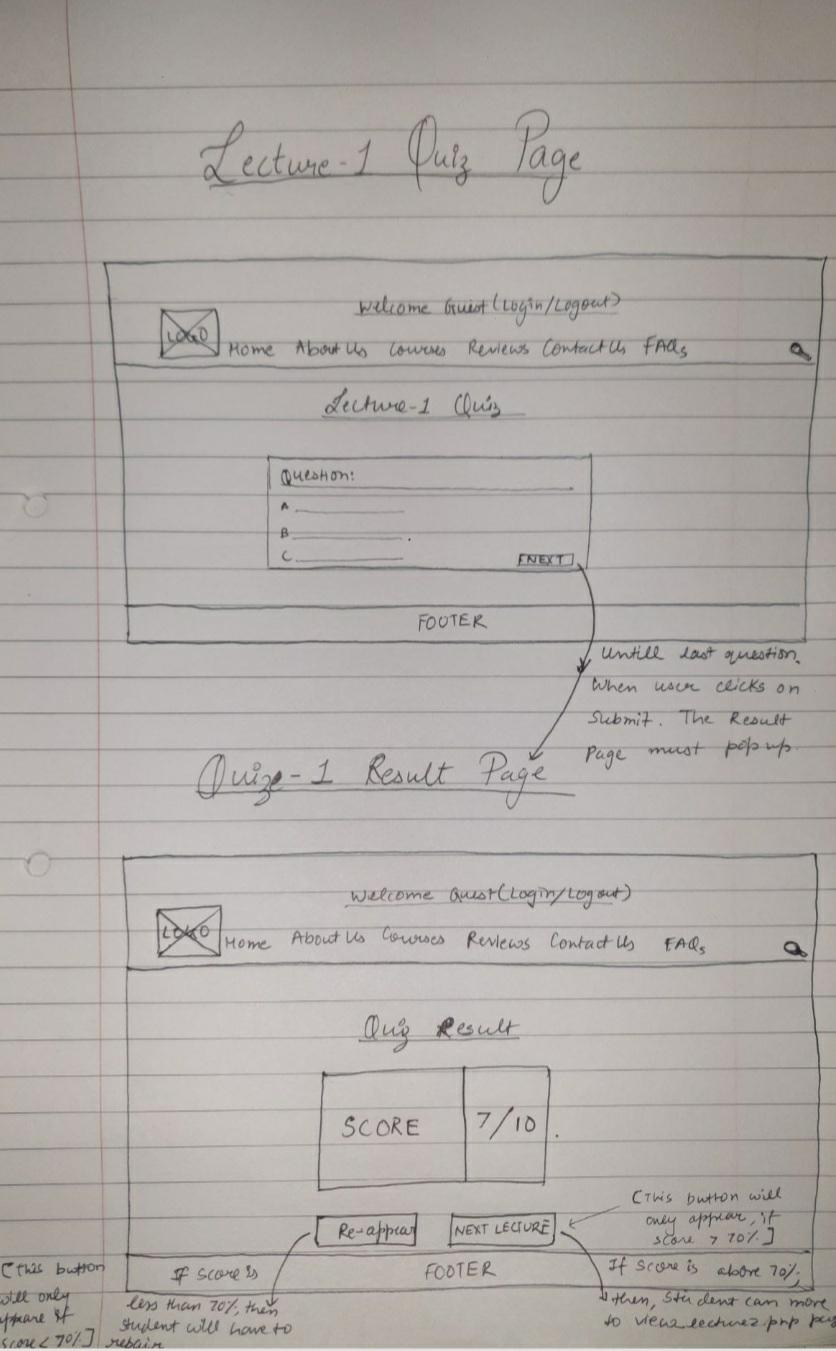 Lecture-1 Quiz Page
Welcome Guest (Login/Logout)
LOGO
Home About Us Courses Reviews Contact Us FAQs
Lecture-1 Quiz
Question:
A
B
C
NEXT
FOOTER
Untill last question.
When user clicks on
Submit. The Result
Page must pop up.
Quize-1 Result Page
Welcome Guest (Login/Logout)
LOGO
Home About Us Courses Reviews Contact Us FAQs
Quiz Result
SCORE 7/10
[This button will
only appear, if
score > 70%]
Re-appear NEXT LECTURE
FOOTER
[This button
will only
appeare if
score < 70%]
If score is
less than 70%, then
student will have to
If score is above 70%,
then, student can move
to view_lecture2.php